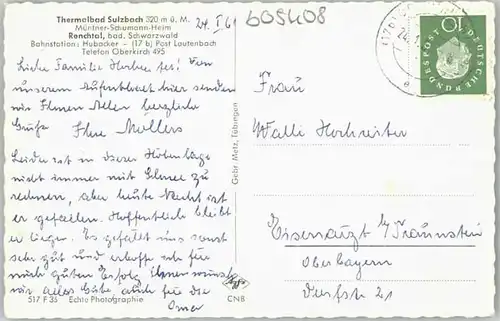 Thermalbad Sulzbach 320 m ü. M.
Müntner-Schumann-Heim
Renchtal, bad. Schwarzwald
Bahnstation: Hubacker - (17 b) Post Lautenbach
Telefon Oberkirch 495
24. I 61
609408
Liebe Familie! Von
unserem Aufenthalt hier senden
wir Ihnen Allen herzliche
Grüße Ihre Möllers
Leider ist in dieser Höhenlage
nicht immer mit Schnee zu
rechnen, aber heute Nacht ist
er gefallen. Hoffentlich bleibt
er liegen. Es gefällt uns sonst
sehr gut und erhoffe ich für
mich guten Erfolg. Ihnen
alles Gute, auch für die
Oma
517 F 35 Echte Photographie
Gebr. Metz, Tübingen
Agfa
CNB
10
DEUTSCHE BUNDESPOST
Frau
Walli Hochreiter
Eisenärzt b/Traunstein
Oberbayern
Dorfstr. 21